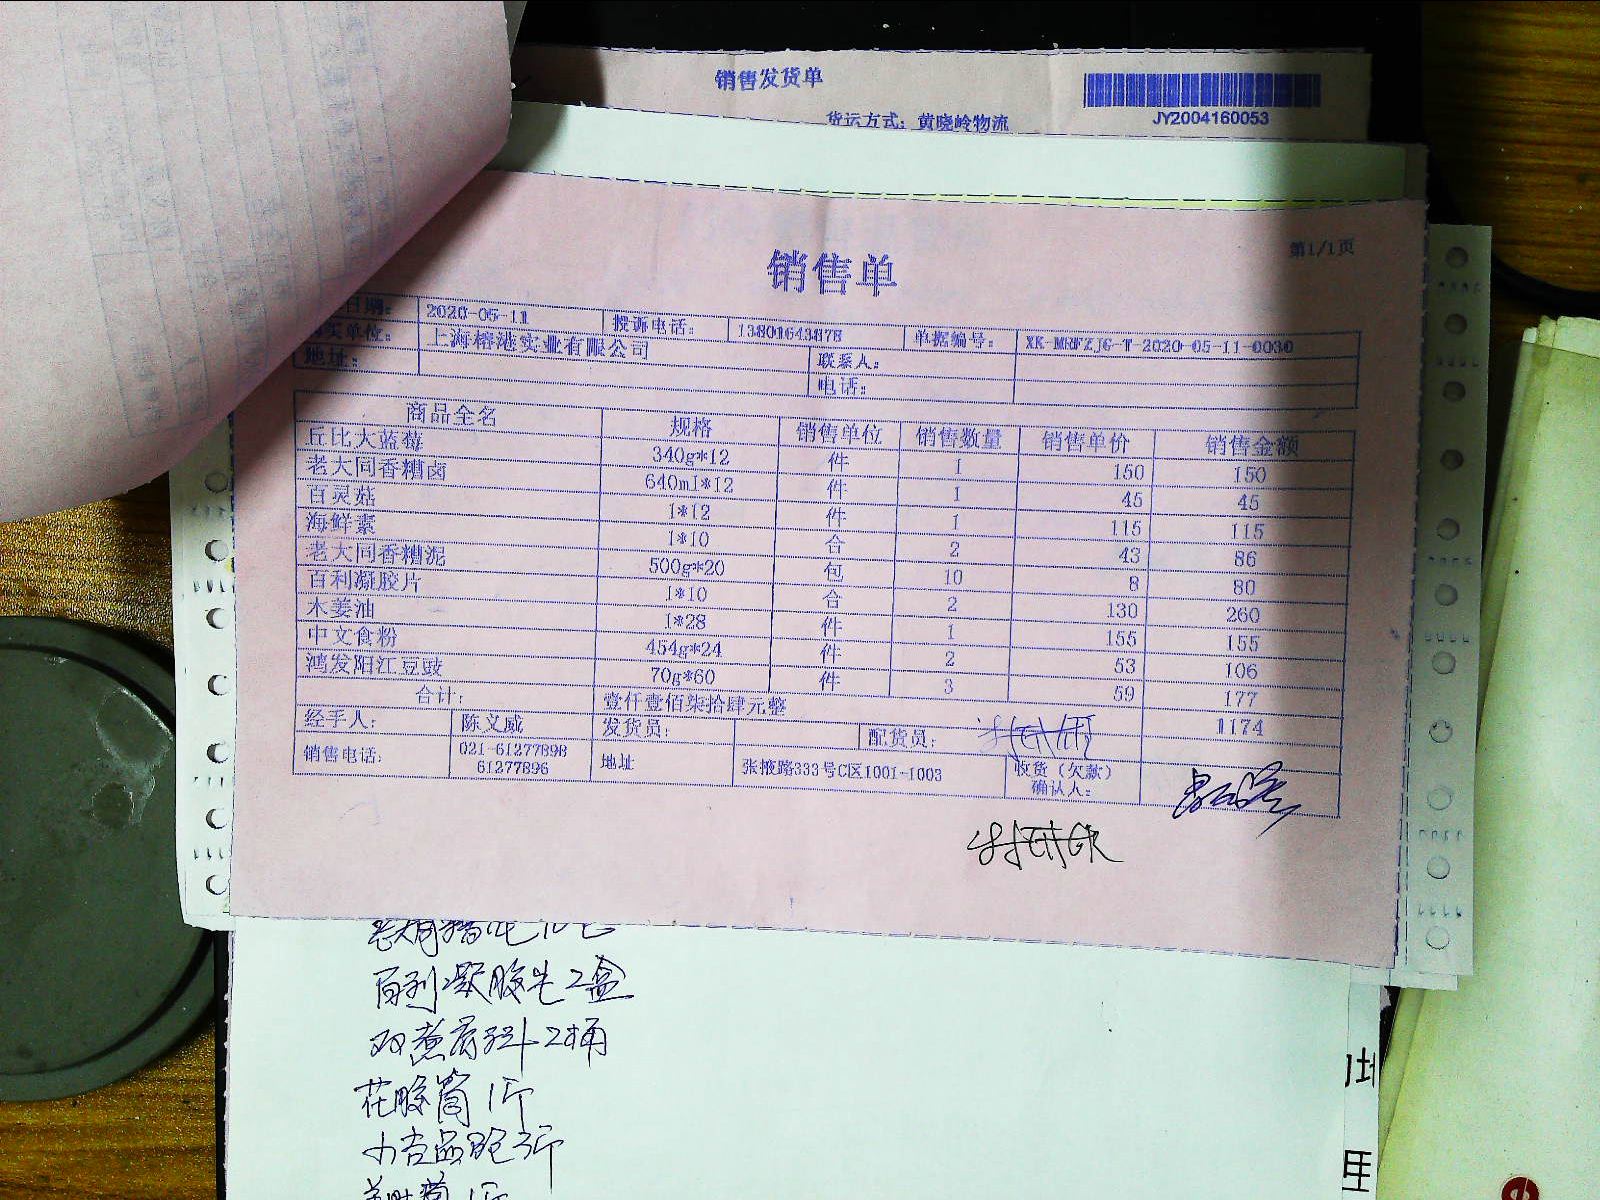 销售发货单
货运方式：黄晓岭物流
JY2004160053
第1/1页
销售单
日期： 2020-05-11 投诉电话： 13801643878 单据编号： XK-MRFZJG-T-2020-05-11-0030
单位： 上海榕港实业有限公司 联系人：
地址： 电话：
商品全名 规格 销售单位 销售数量 销售单价 销售金额
丘比大蓝莓 340g*12 件 1 150 150
老大同香糟卤 640ml*12 件 1 45 45
百灵菇 1*12 件 1 115 115
海鲜素 1*10 合 2 43 86
老大同香糟泥 500g*20 包 10 8 80
百利凝胶片 1*10 合 2 130 260
木姜油 1*28 件 1 155 155
中文食粉 454g*24 件 2 53 106
鸿发阳江豆豉 70g*60 件 3 59 177
合计： 壹仟壹佰柒拾肆元整 1174
经手人： 陈义威 发货员： 配货员：
销售电话： 021-61277898 61277896 地址 张掖路333号C区1001-1003 收货（欠款）确认人：
百利凝胶片2盒
2桶
花胶筒 1斤